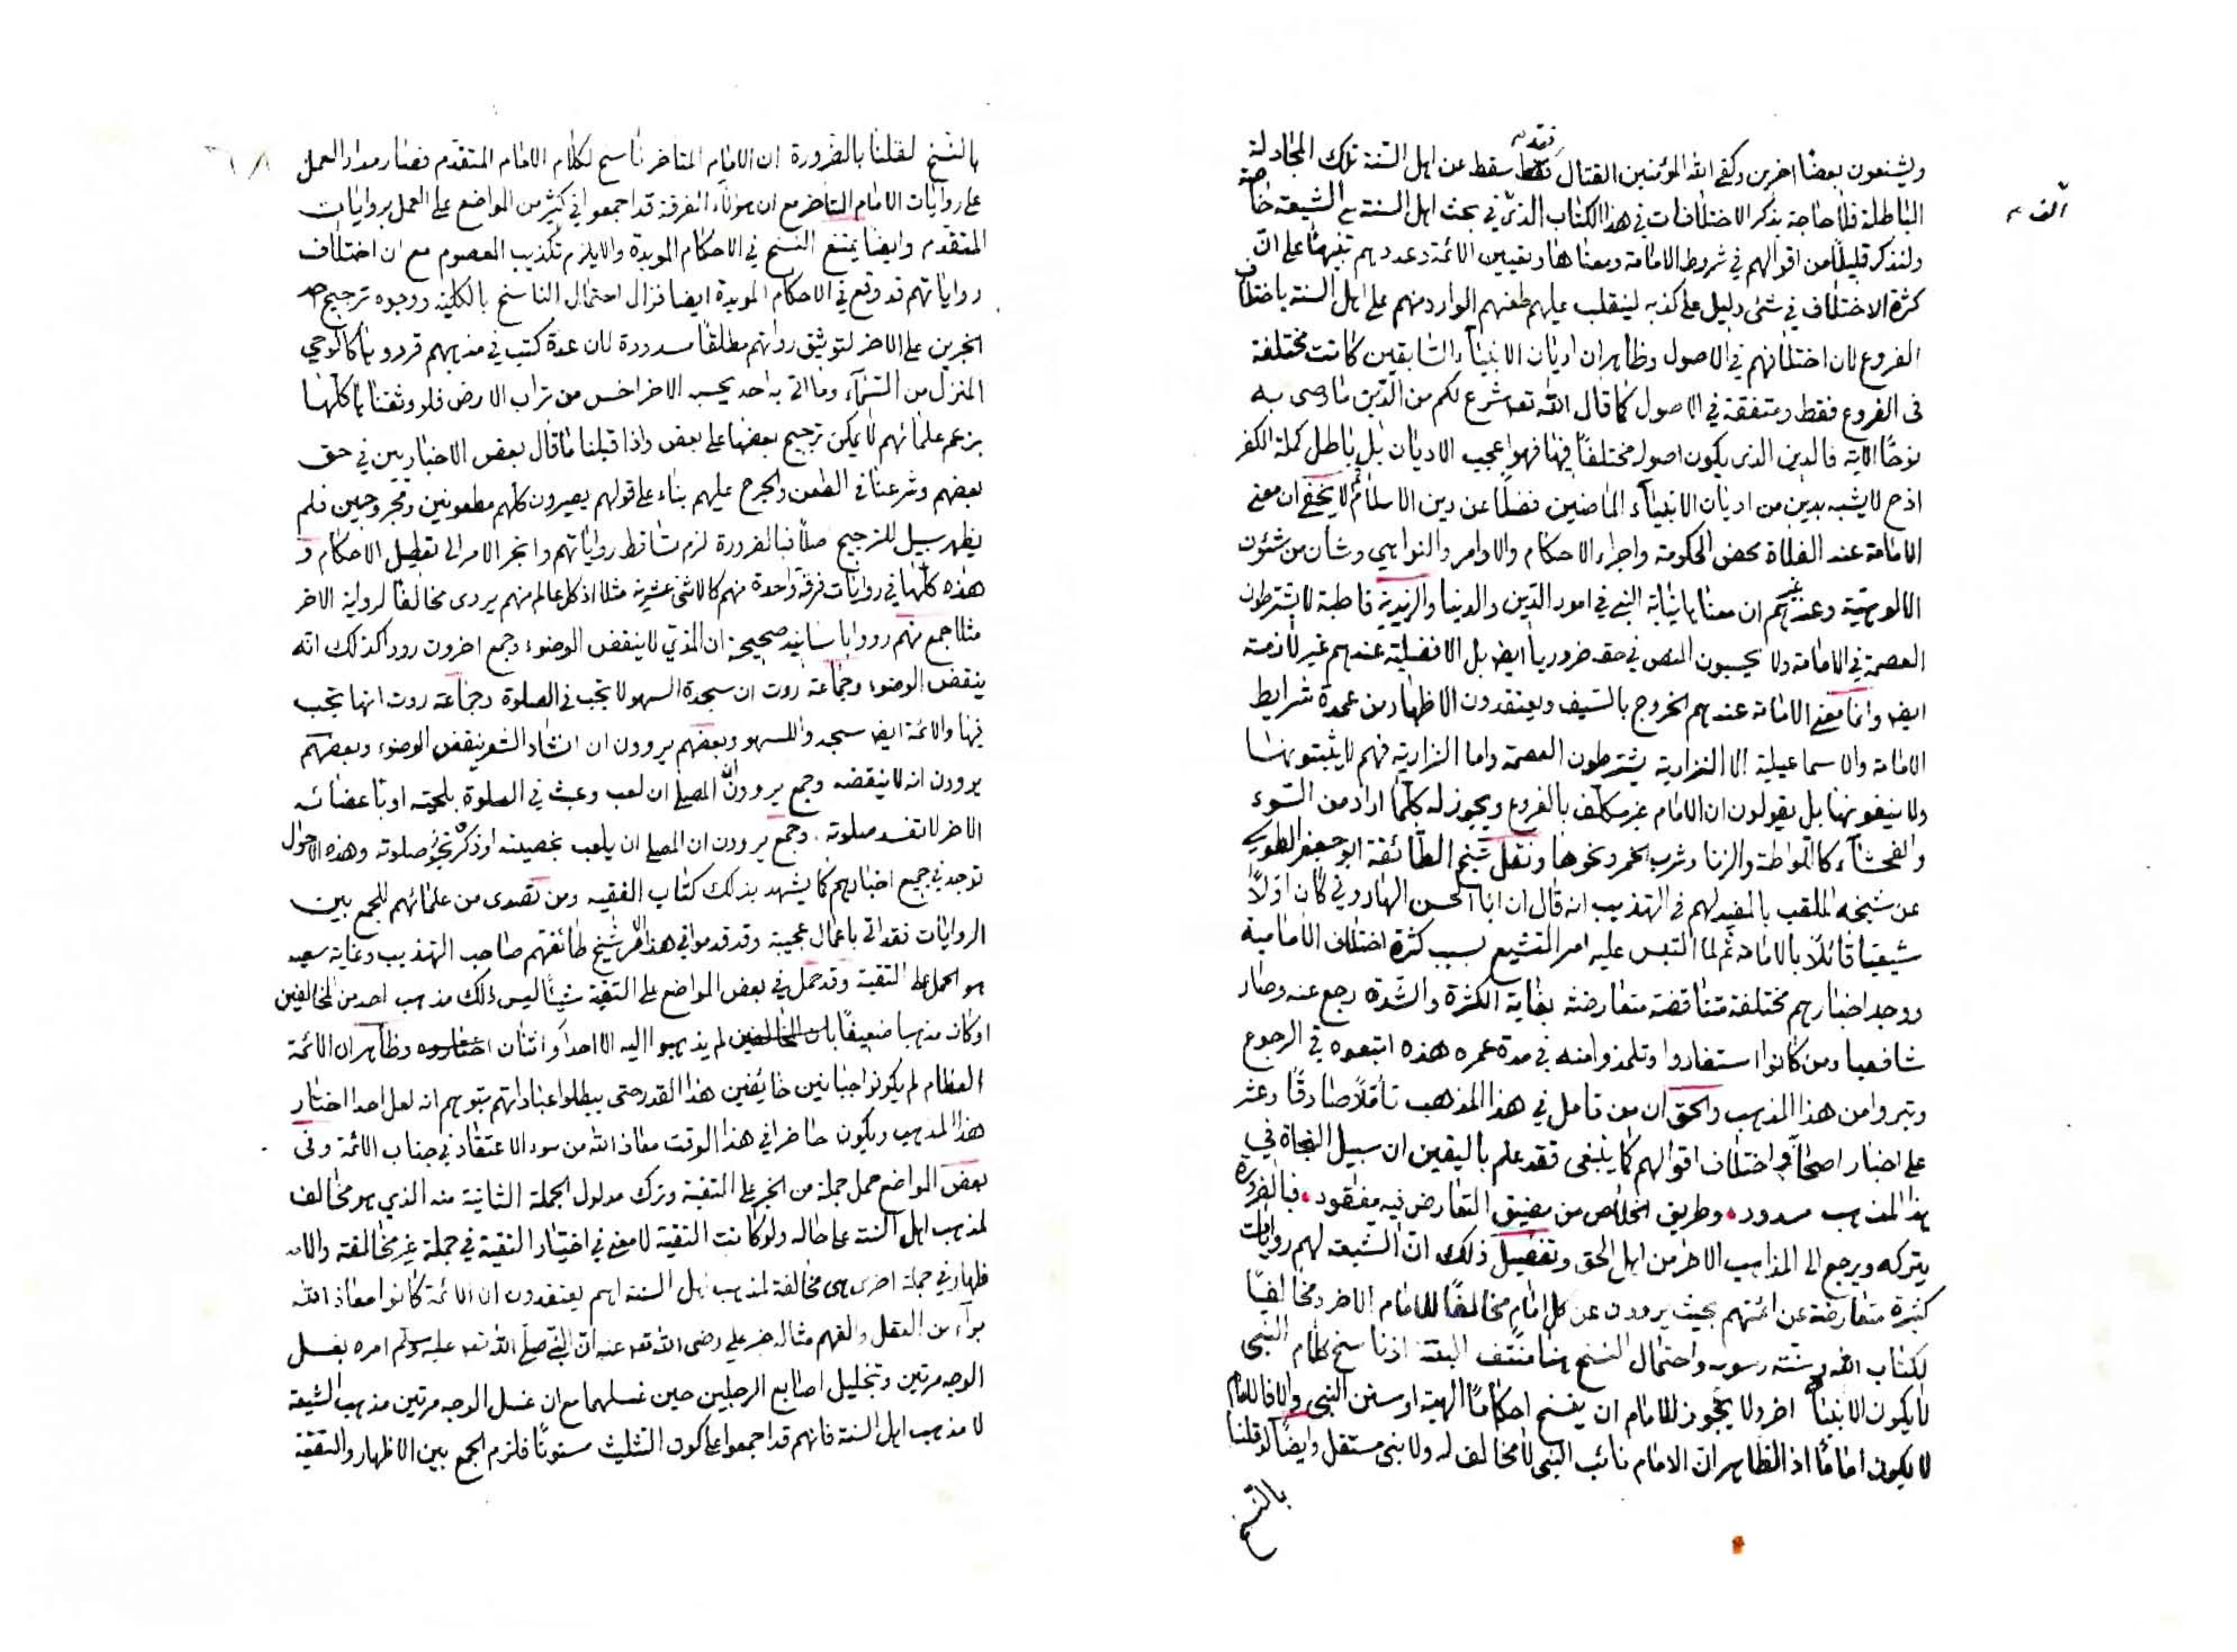 ويشنعون بعضا اخرين وكفى الله المؤمنين القتال فقد سقط عن اهل السنة تلك المجادلة
الباطلة فلا حاجة بذكر الاختلافات في هذا الكتاب الذي في بحث اهل السنة مع الشيعة خاصة
الف
ولنذكر قليلا من اقوالهم في شروط الامامة ومعناها وتعيين الائمة وعددهم تنبيها على ان
كثرة الاختلاف في شئ دليل على كذبه لينقلب عليهم طعنهم الوارد منهم على اهل السنة باختلاف
الفروع لان اختلافهم في الاصول وظاهر ان اديان الانبياء والسابقين كانت مختلفة
في الفروع فقط ومتفقة في الاصول كما قال الله تعه شرع لكم من الدين ما وصى به
نوحا الاية فالدين الذي يكون اصوله مختلفا فيها فهو اعجب الاديان بل باطل كملة الكفر
اذ ح لا يشبه بدين من اديان الانبياء الماضين فضلا عن دين الاسلام ثم لا يخفى ان معنى
الامامة عند الغلاة محض الحكومة واجراء الاحكام والاوامر والنواهي وشأن من شئون
الالوهية وعند غيرهم ان معناها نيابة النبي في امور الدين والدنيا والزيدية قاطبة لا يشترطون
العصمة في الامامة ولا يحسبون النص في حقه ضروريا ايض بل الافضلية عندهم غير لازمة
ايض وانما معنى الامامة عندهم الخروج بالسيف ويعتقدون الاظهار من عمدة شرايط
الامامة والاسماعيلية الا النزارية يشترطون العصمة واما النزارية فهم لا يثبتونها
ولا ينفونها بل يقولون ان الامام غير مكلف بالفروع ويجوز له كلما اراد من السوء
والفحشاء كاللواطة والزنا وشرب الخمر ونحوها ونقل شيخ الطائفة ابو جعفر الطوسي
عن شيخه الملقب بالمفيد لهم في التهذيب انه قال ان ابا الحسن الهاروني كان اولا
شيعيا قائلا بالامامة ثم لما التبس عليه امر التشيع بسبب كثرة اختلاف الامامية
ووجد اخبارهم مختلفة متناقضة متعارضة بغاية الكثرة والشدة رجع عنه وصار
شافعيا ومن كانوا استفادوا وتلمذوا منه في مدة عمره هذه اتبعوه في الرجوع
وتبروا من هذا المذهب والحق ان من تامل في هذا المذهب تأملا صادقا وعثر
على اخبار اصحابه واختلاف اقوالهم كما ينبغي فقد علم باليقين ان سبيل النجاة في
هذا المذهب مسدود وطريق الخلاص من مضيق التعارض فيه مفقود فبالضرورة
يتركه ويرجع الى المذاهب الاخر من اهل الحق وتفصيل ذلك ان الشيعة لهم روايات
كثيرة متعارضة عن ائمتهم بحيث يروون عن كل امام مخالفا للامام الاخر ومخالفا
لكتاب الله وسنة رسوله واحتمال النسخ هنا منتف البتة اذ ناسخ كلام النبي
لا يكون الا نبيا اخر ولا يجوز للامام ان ينسخ احكاما الهية او سنن النبي والا فالامام
لا يكون اماما اذ الظاهر ان الامام نائب النبي لا مخالف له ولا نبي مستقل وايضا لو قلنا
بالنسخ
بالنسخ لقلنا بالضرورة ان الامام المتاخر ناسخ لكلام الامام المتقدم فصار مدار العمل
على روايات الامام المتاخر مع ان هؤلاء الفرقة قد اجمعوا في كثير من المواضع على العمل بروايات
المتقدم وايضا يمتنع النسخ في الاحكام المؤبدة والا يلزم تكذيب المعصوم مع ان اختلاف
رواياتهم قد وقع في الاحكام المؤبدة ايضا فزال احتمال الناسخ بالكلية ووجوه ترجيح احد
الخبرين على الاخر لتوثيق رواتهم مطلقا مسدودة لان عدة كتب في مذهبهم قرروها كالوحي
المنزل من السماء وما اتى به احد يحسبه الاخر اخس من تراب الارض فلو وثقناها كلها
بزعم علمائهم لا يمكن ترجيح بعضها على بعض واذا قبلنا ما قال بعض الاخباريين في حق
بعضهم وشرعنا في الطعن والجرح عليهم بناء على قولهم يصيرون كلهم مطعونين ومجروحين فلم
يظهر سبيل للترجيح اصلا فبالضرورة لزم تساقط رواياتهم وانجر الامر الى تعطيل الاحكام و
هذه كلها في روايات فرقة واحدة منهم كالاثني عشرية مثلا اذ كل عالم منهم يروى مخالفا لرواية الاخر
مثلا جمع منهم رووا باسانيد صحيحة ان المذي لا ينقض الوضوء وجمع اخرون رووا كذلك انه
ينقض الوضوء وجماعة روت ان سجدة السهو لا تجب في الصلوة وجماعة روت انها تجب
فيها والائمة ايض سجدوا للسهو وبعضهم يروون ان انشاد الشعر ينقض الوضوء وبعضهم
يروون انه لا ينقضه وجمع يروون ان المصلي ان لعب وعبث في الصلوة بلحيته او باعضائه
الاخر لا تفسد صلوته وجمع يروون ان المصلي ان يلعب بخصيته او ذكره تجز صلوته وهذه الاحوال
توجد في جميع اخبارهم كما يشهد بذلك كتاب الفقيه ومن تصدى من علمائهم للجمع بين
الروايات فقد اتى باعمال عجيبة وقد قدموا في هذا الامر شيخ طائفتهم صاحب التهذيب وغاية سعيه
هو الحمل على التقية وقد حمل في بعض المواضع على التقية شيئا ليس ذلك مذهب احد من المخالفين
او كان مذهبا ضعيفا بان المخالفين لم يذهبوا اليه الا احدا واثنان اختاروه وظاهر ان الائمة
العظام لم يكونوا جبانين خائفين هذا القدر حتى يبطلوا عباداتهم بتوهم انه لعل احدا اختار
هذا المذهب ويكون حاضرا في هذا الوقت معاذ الله من سوء الاعتقاد في جناب الائمة وفى
بعض المواضع حمل جملة من الخبر على التقية وترك مدلول الجملة الثانية منه الذي هو مخالف
لمذهب اهل السنة على حاله ولو كانت التقية لا معنى في اختيار التقية في جملة غير مخالفة والا
ظهار في جملة اخرى هى مخالفة لمذهب اهل السنة اهم يعتقدون ان الائمة كانوا معاذ الله
براء من العقل والفهم مثاله خبر علي رضى الله تعه عنه ان النبي صلى الله تعه عليه وسلم امره بغسل
الوجه مرتين وبتخليل اصابع الرجلين حين غسلهما مع ان غسل الوجه مرتين مذهب الشيعة
لا مذهب اهل السنة فانهم قد اجمعوا على كون التثليث مسنونا فلزم الجمع بين الاظهار والتقية